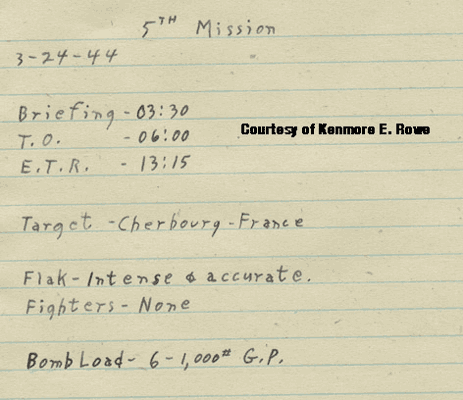 5TH Mission
3-24-44
Briefing - 03:30
T.O. - 06:00
Courtesy of Kenmore E. Rowe
E.T.R. - 13:15
Target - Cherbourg - France
Flak - Intense & accurate.
Fighters - None
Bomb Load - 6 - 1,000# G.P.